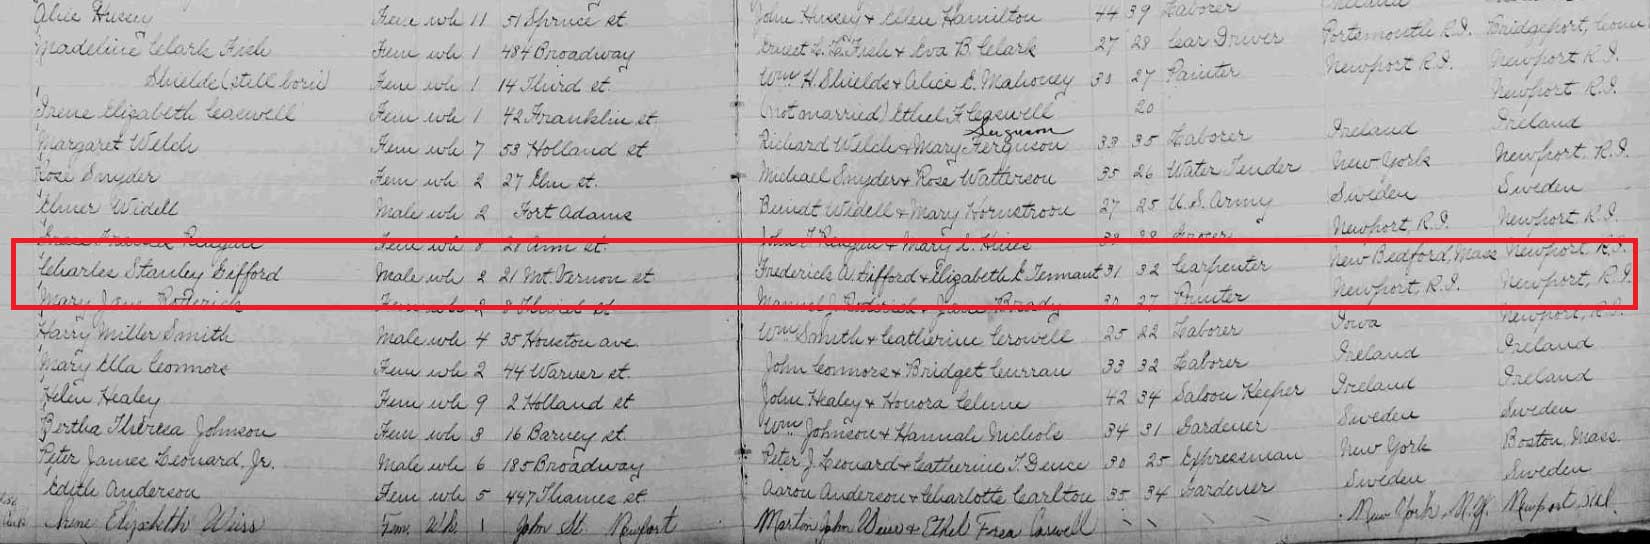 Alice Hussey Fem wh 11 51 Spruce st John Hussey & Ellen Hamilton 44 39 Laborer Ireland
Madeline Clark Fish Fem wh 1 484 Broadway Ernest L. Fish & Eva B. Clark 27 28 Car Driver Portsmouth R.I. Bridgeport, Conn
Shields (still born) Fem wh 1 14 Third st. Wm H. Shields & Alice E. Mahoney 30 27 Painter Newport R.I. Newport R.I.
Irene Elizabeth Caswell Fem wh 1 42 Franklin st. (not married) Ethel F Caswell 20 Newport R.I.
Ferguson
Margaret Welch Fem wh 7 53 Holland st Richard Welch & Mary Ferguson 33 35 Laborer Ireland Ireland
Rose Snyder Fem wh 2 27 Elm st. Michael Snyder & Rose Watterson 35 26 Water Tender New York Newport, R.I.
Elmer Widell Male wh 2 Fort Adams Berndt Widell & Mary Hornstroon 27 25 U.S. Army Sweden Sweden
Fem wh 8 20 Ann st. John F Reagan & Mary E. Hines 39 28 Newport, R.I. Newport R.I.
Charles Stanley Gifford Male wh 2 21 Mt. Vernon st Frederick A. Gifford & Elizabeth E Tennant 31 32 Carpenter New Bedford, Mass Newport, R.I.
Mary Jane Roderick Fem wh 2 8 st Manuel J. Roderick & Jane Brady 30 27 Painter Newport, R.I. Newport, R.I.
Harry Miller Smith Male wh 4 35 Houston ave. Wm Smith & Catherine Crowell 25 22 Laborer Iowa Newport, R.I.
Mary Ella Connors Fem wh 2 44 Warner st. John Connors & Bridget Curran 33 32 Laborer Ireland Ireland
Helen Healey Fem wh 9 2 Holland st John Healey & Honora Clune 42 34 Saloon Keeper Ireland Ireland
Bertha Theresa Johnson Fem wh 3 16 Barney st. Wm Johnson & Hannah Nichols 34 31 Gardener Sweden Sweden
Peter James Leonard, Jr. Male wh 6 185 Broadway Peter J. Leonard & Catherine T. Dence 30 25 Expressman New York Boston, Mass.
Edith Anderson Fem wh 5 447 Thames st Aaron Anderson & Charlotte Carlton 35 34 Gardener Sweden Sweden
Irene Elizabeth Weiss Fem. Wh. 1 John St. Newport Martin John Weiss & Ethel Caswell New York, N.Y. Newport, R.I.